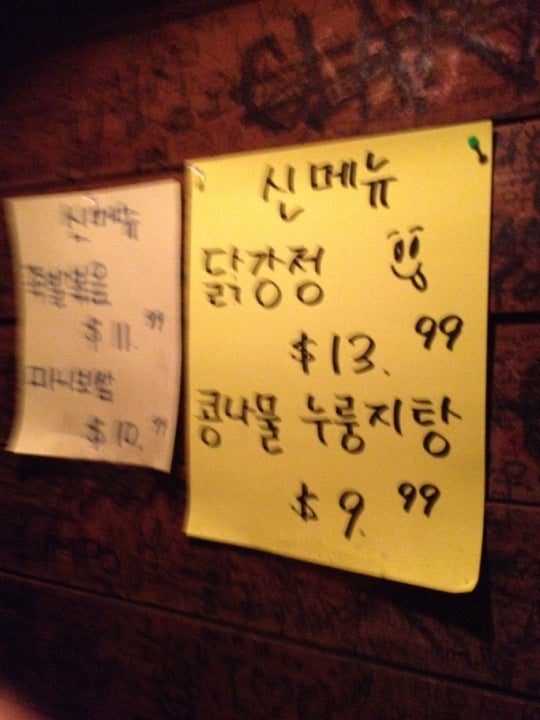 신메뉴
족발볶음
$11.99
미니보쌈
$10.99
신메뉴
닭강정
$13.99
콩나물 누룽지탕
$9.99